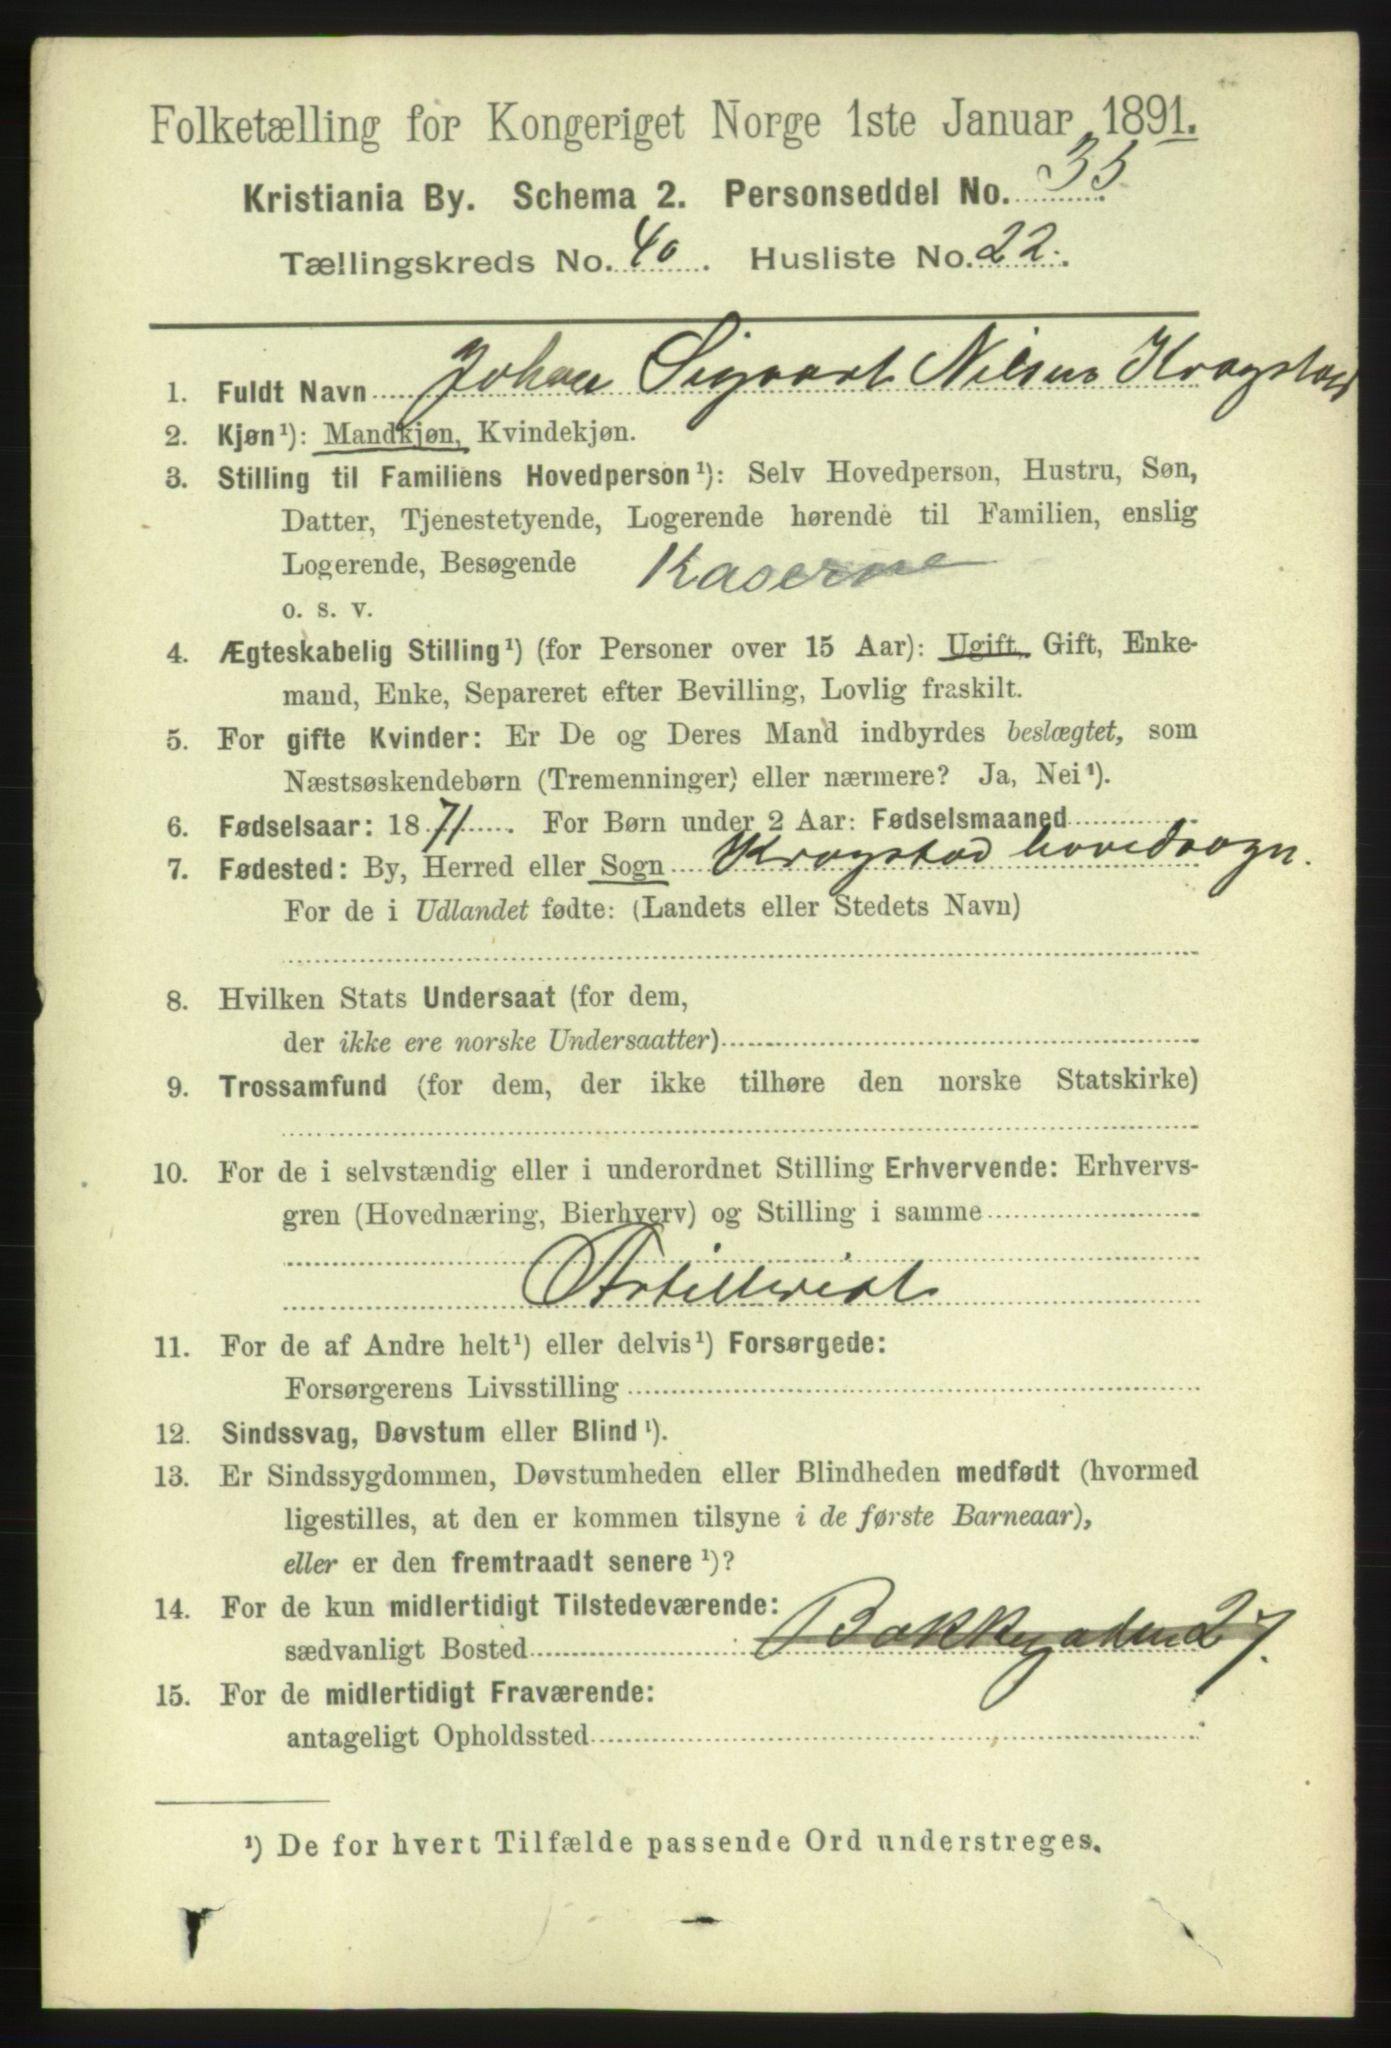 Folketælling for Kongeriget Norge 1ste Januar 1891.
Kristiania By. Schema 2. Personseddel No. 35.
Tællingskreds No. 40. Husliste No. 22.
1. Fuldt Navn Johan Sigvart Nilsen Kragstad
2. Kjøn¹): Mandkjøn, Kvindekjøn.
3. Stilling til Familiens Hovedperson¹): Selv Hovedperson, Hustru, Søn,
Datter, Tjenestetyende, Logerende hørende til Familien, enslig
Logerende, Besøgende Kaserne
o. s. v.
4. Ægteskabelig Stilling¹) (for Personer over 15 Aar): Ugift, Gift, Enke-
mand, Enke, Separeret efter Bevilling, Lovlig fraskilt.
5. For gifte Kvinder: Er De og Deres Mand indbyrdes beslægtet, som
Næstsøskendebørn (Tremenninger) eller nærmere? Ja, Nei¹).
6. Fødselsaar: 1871. For Børn under 2 Aar: Fødselsmaaned
7. Fødested: By, Herred eller Sogn Kragstad hovedsogn.
For de i Udlandet fødte: (Landets eller Stedets Navn)
8. Hvilken Stats Undersaat (for dem,
der ikke ere norske Undersaatter)
9. Trossamfund (for dem, der ikke tilhøre den norske Statskirke)
10. For de i selvstændig eller i underordnet Stilling Erhvervende: Erhvervs-
gren (Hovednæring, Bierhverv) og Stilling i samme
Artillerist
11. For de af Andre helt¹) eller delvis¹) Forsørgede:
Forsørgerens Livsstilling
12. Sindssvag, Døvstum eller Blind¹).
13. Er Sindssygdommen, Døvstumheden eller Blindheden medfødt (hvormed
ligestilles, at den er kommen tilsyne i de første Barneaar),
eller er den fremtraadt senere¹)?
14. For de kun midlertidigt Tilstedeværende:
sædvanligt Bosted Bakkegaden 27.
15. For de midlertidigt Fraværende:
antageligt Opholdssted
¹) De for hvert Tilfælde passende Ord understreges.